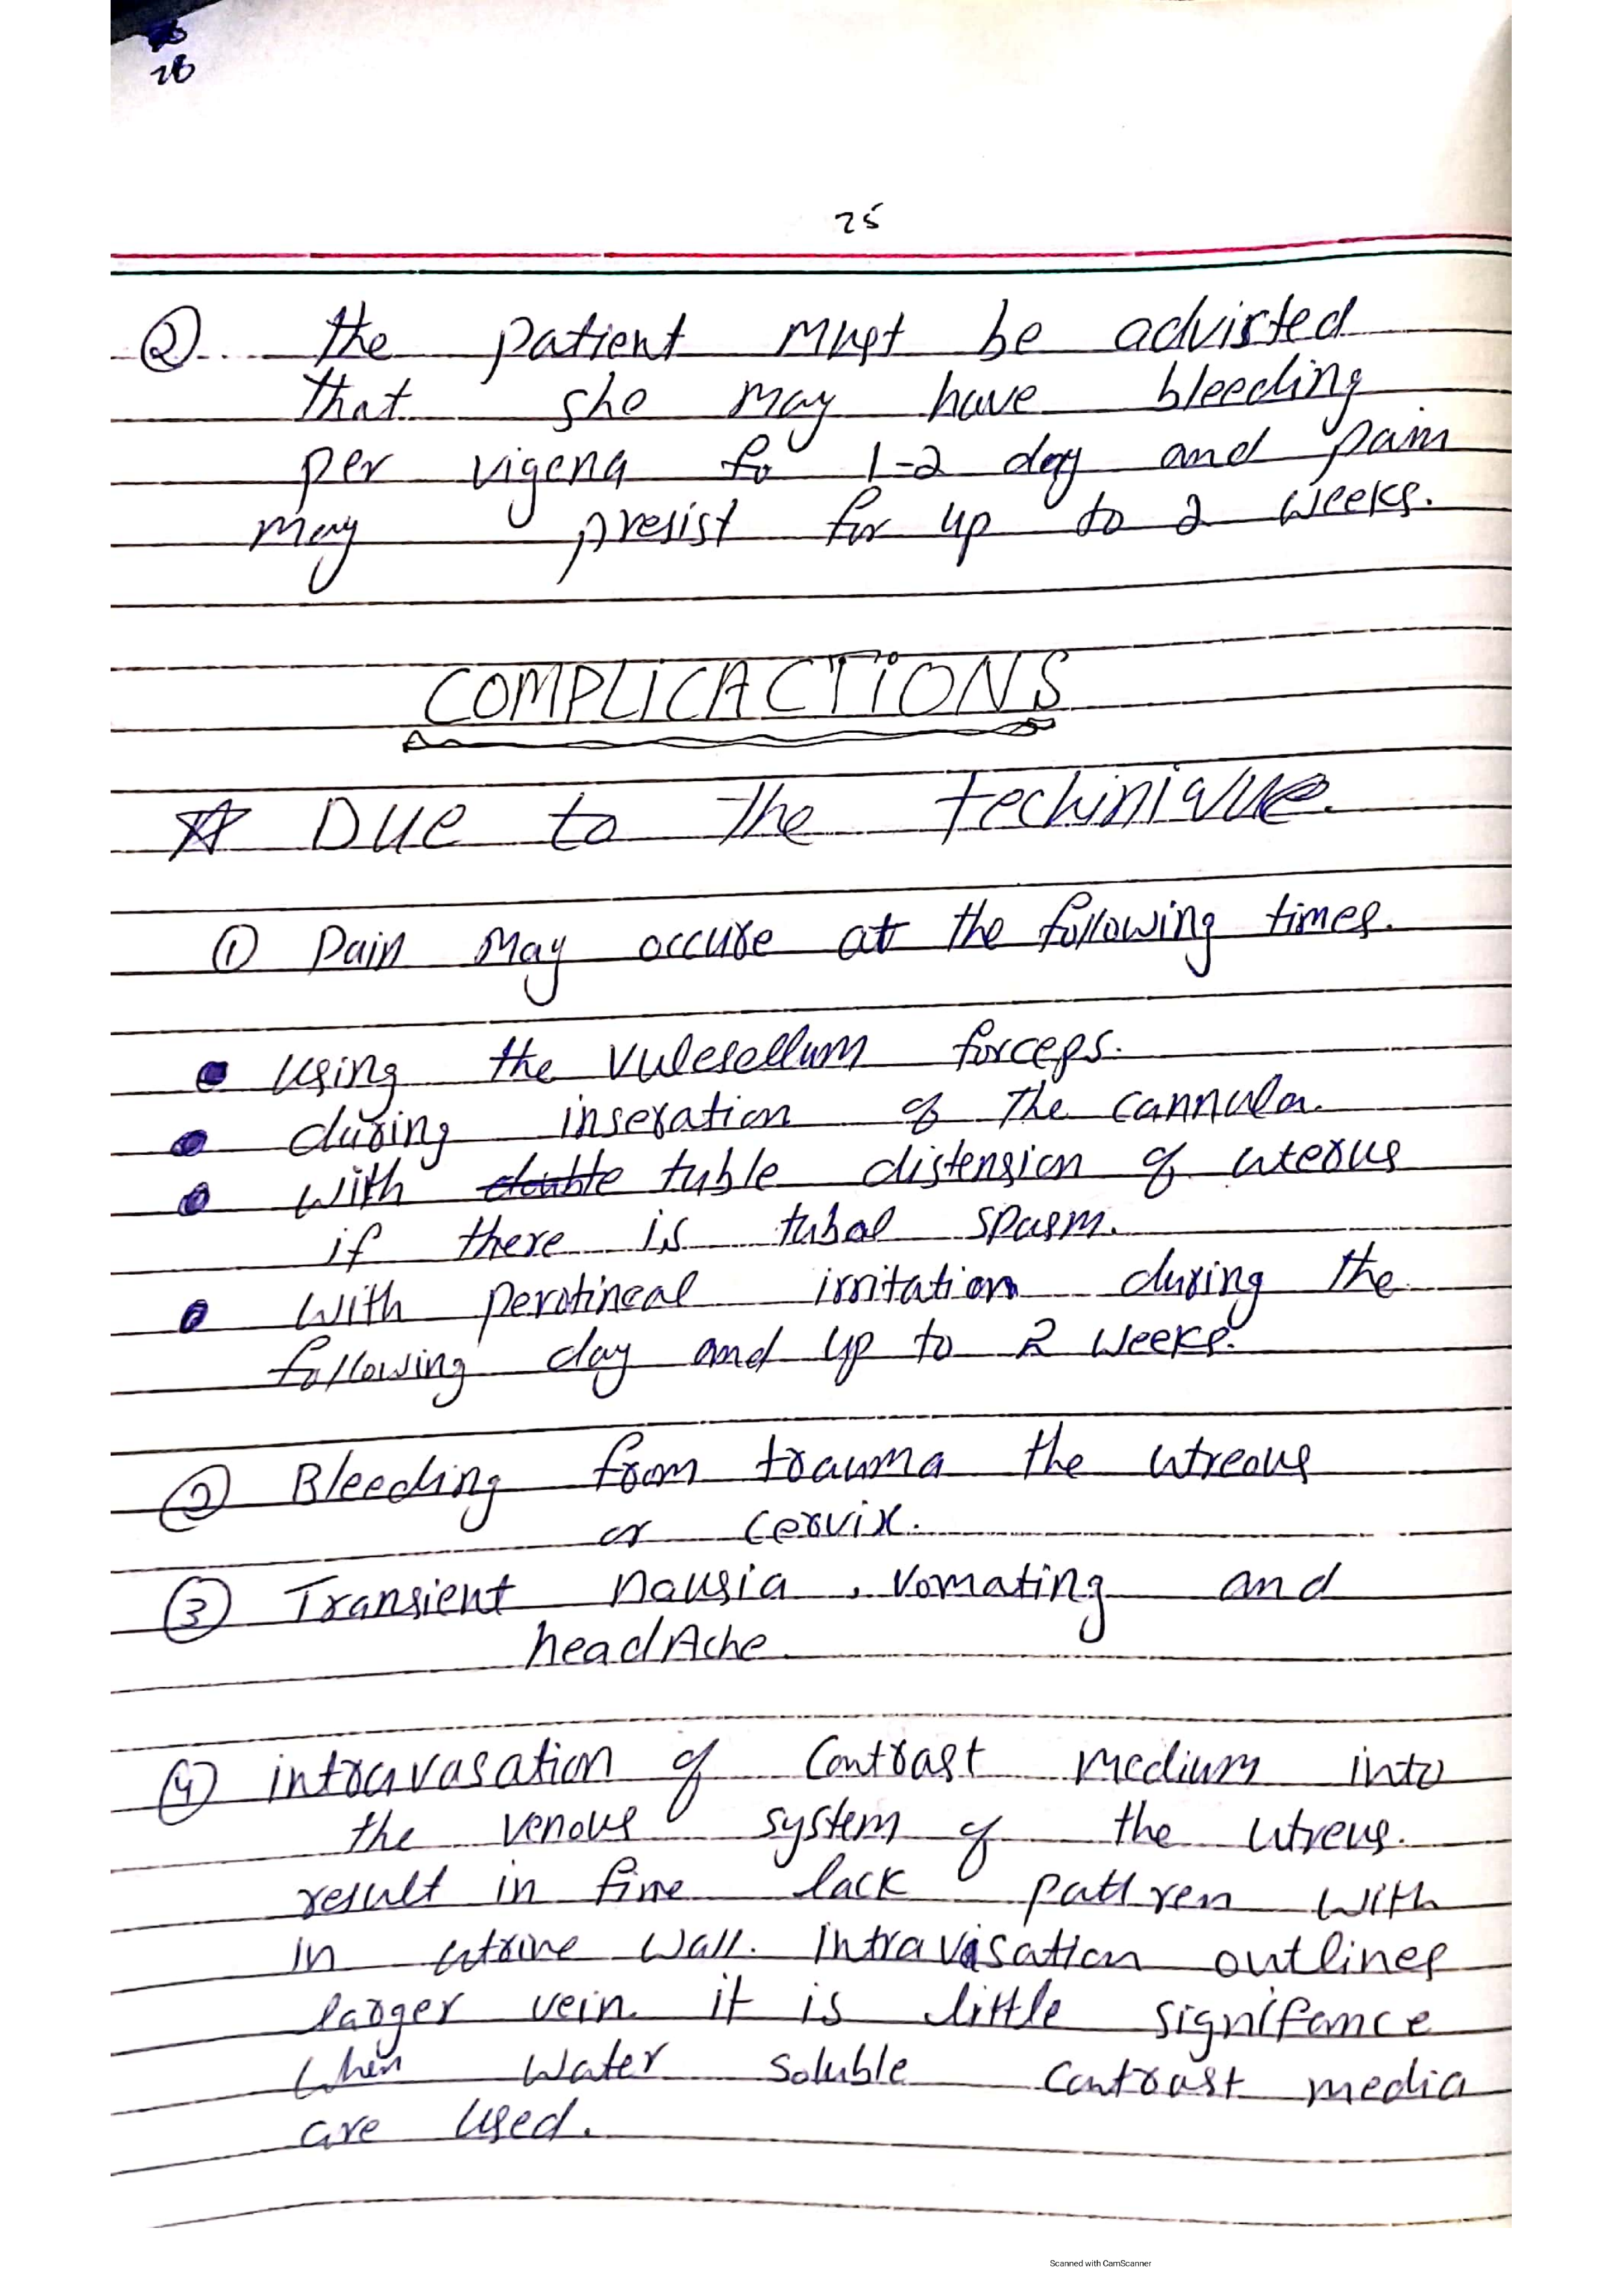 26
25
② the patient must be advisted
that she may have bleeding
per vigena for 1-2 day and pain
may presist for up to 2 weeks.
COMPLICACTiONS
☆ Due to the techinique.
① Pain May occure at the following times.
● using the vulesellum forceps.
● during inseration of the cannula.
● with double tuble distension of uterus
if there is tubal spasm.
● with perotineal irritation during the
following day and up to 2 weeks.
② Bleeding from trauma the utreous
or cervix.
③ Transient nausia, vomating and
headAche.
④ intravasation of Contrast medium into
the venous system of the utreus.
result in fine lack pattren with
in utrine wall. Intravisation outlines
larger vein. it is little signifance
when water soluble contrast media
are used.
Scanned with CamScanner